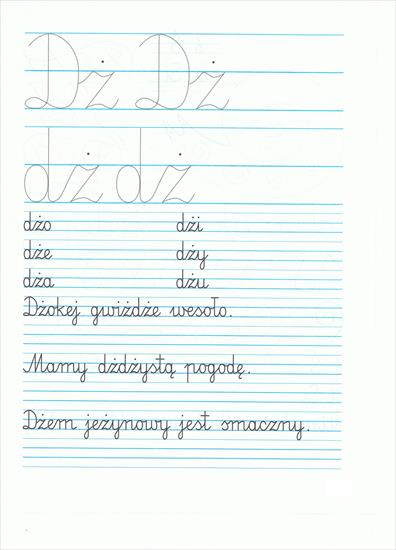 Dż Dż
dż dż
dżo dżi
dże dży
dża dżu
Dżokej gwiżdże wesoło.
Mamy dżdżystą pogodę.
Dżem jeżynowy jest smaczny.